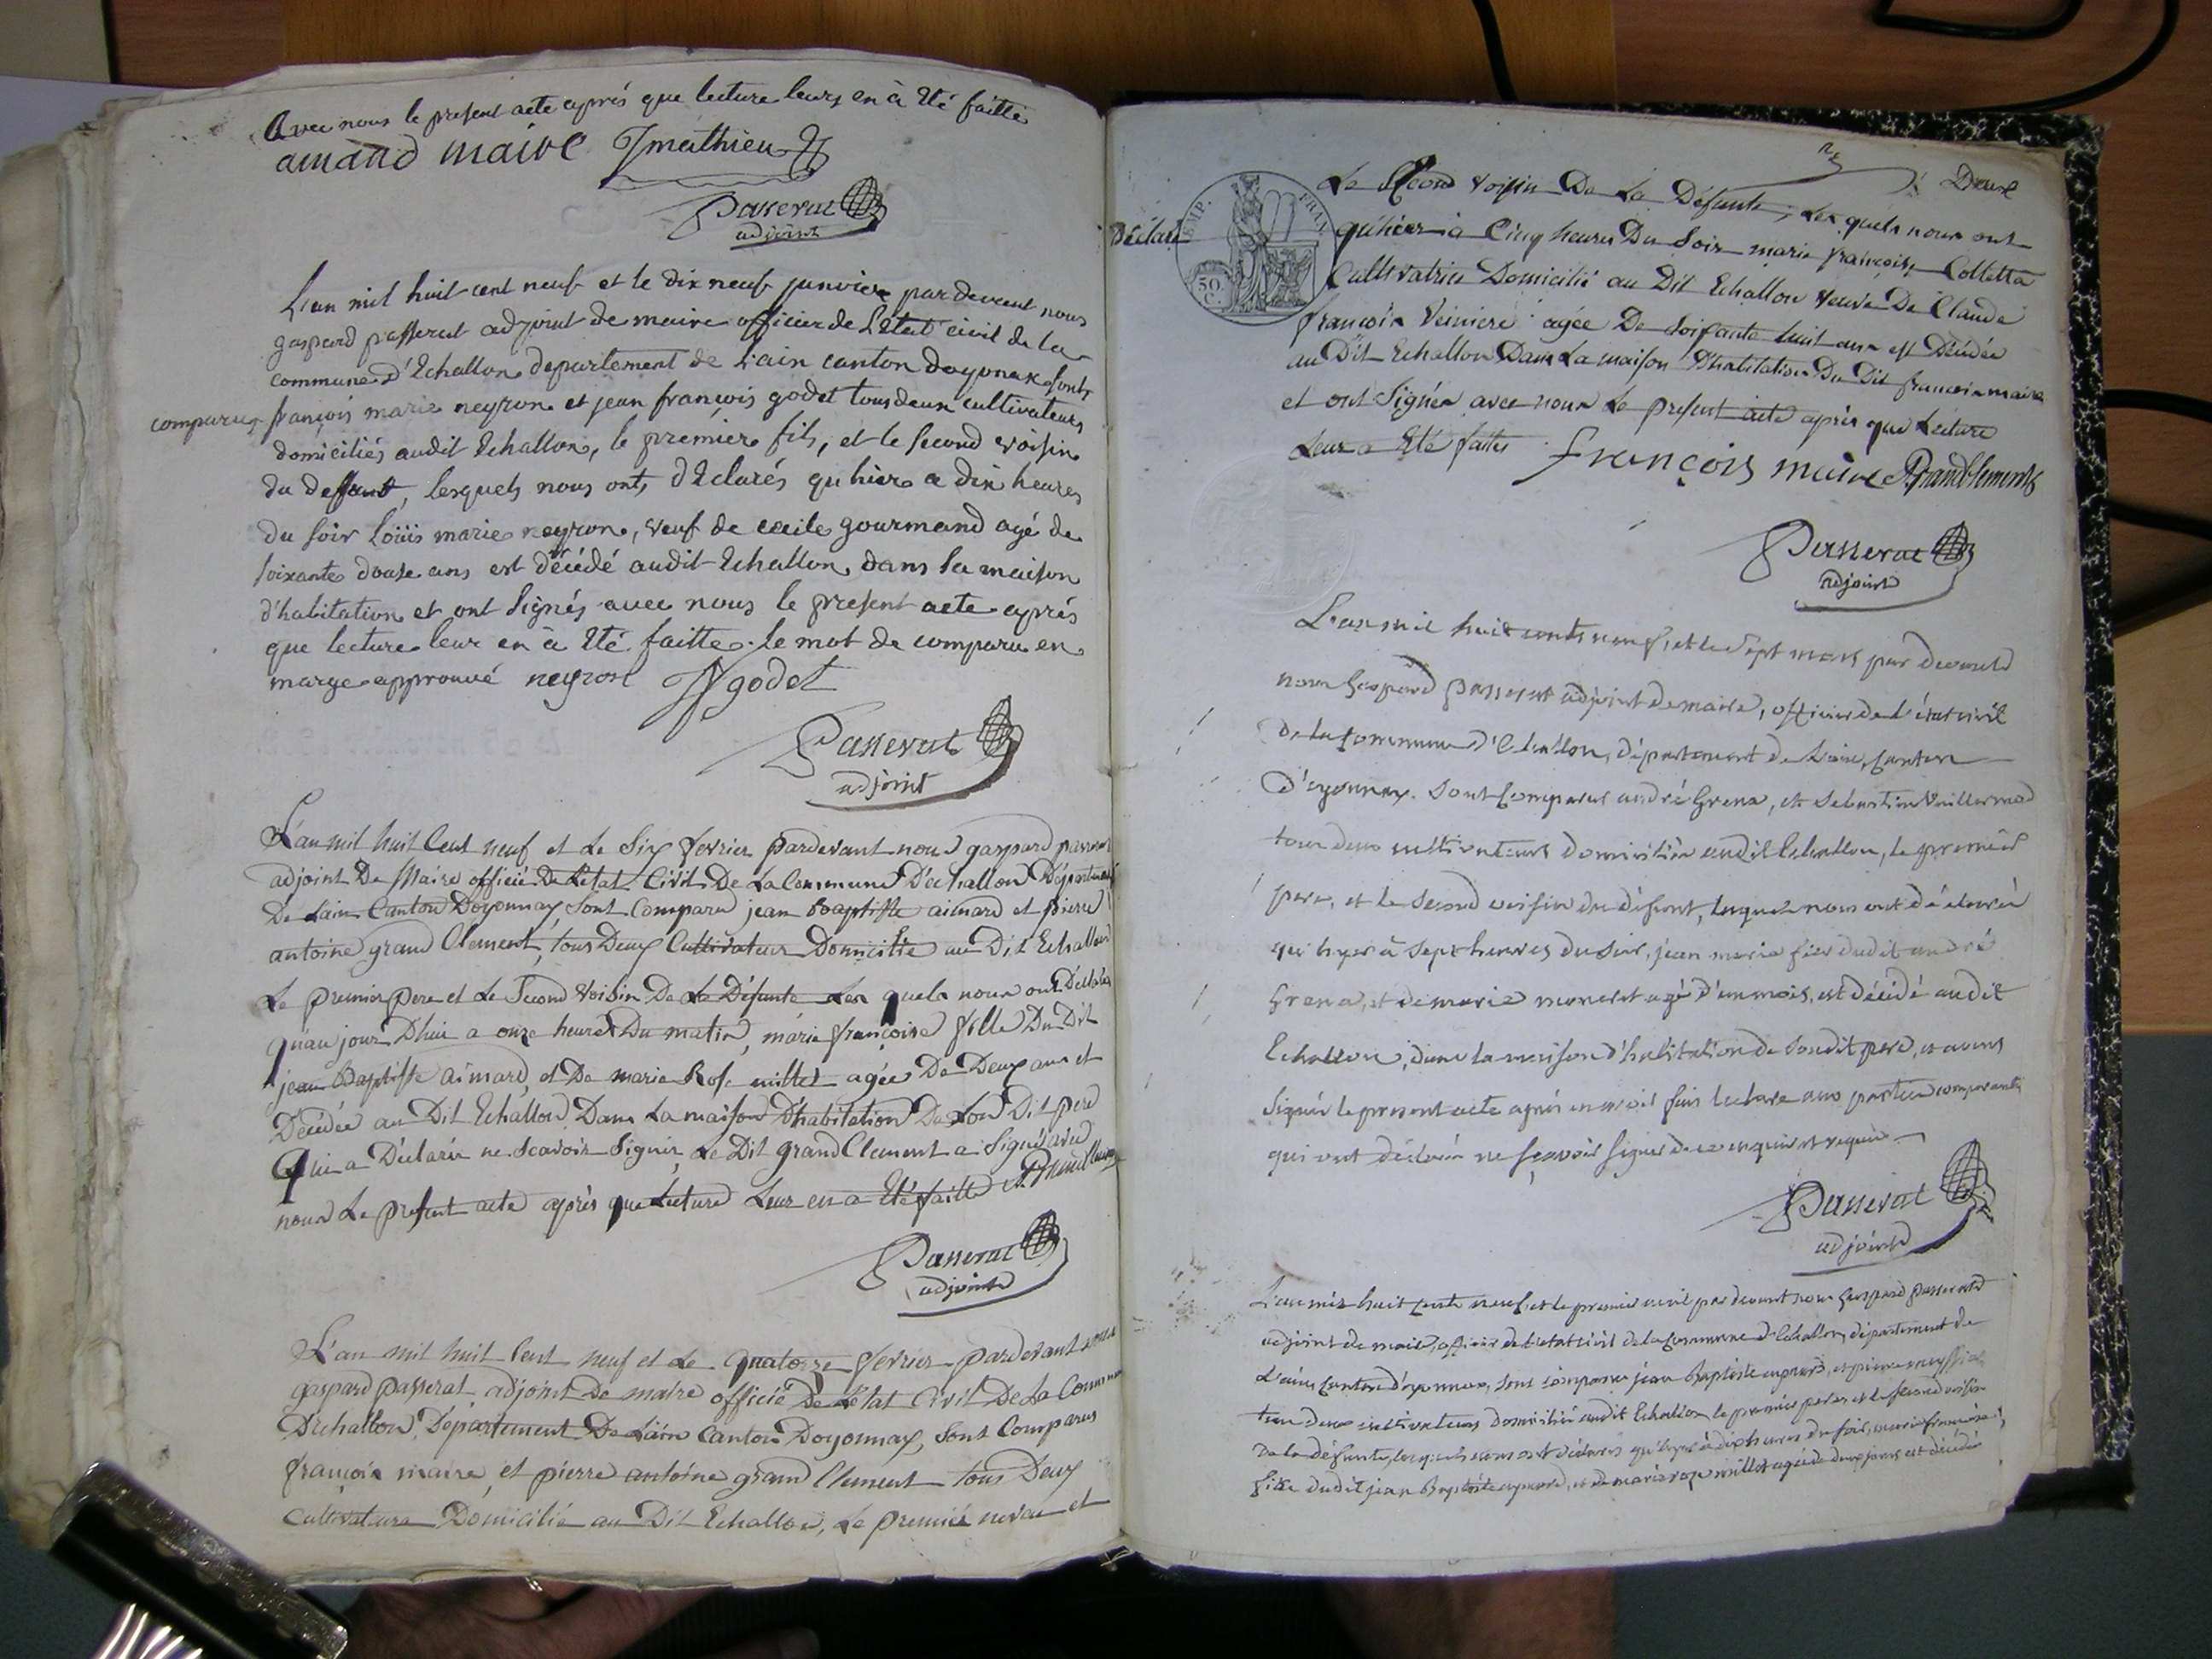 Avec nous le present acte aprés que lecture leurs en à Eté faitte
amand maire Jmathieu
Passerat
adjoint
L'an mil huit cent neuf et le dix neuf janvier par devant nous
gaspard passerat adjoint de maire officier de L'Etat civil de la
commune d'Echallon departement de L'ain canton doyonnax sont
comparus françois marie neyron et jean françois godet tous deux cultivateurs
domiciliés audit Echallon, le premier fils, et le second voisin
du deffunt, lesquels nous onts déclarés qu'hier a dix heures
du soir Loüis marie neyron, veuf de cecile gourmand agé de
soixante douze ans est décédé audit Echallon dans sa maison
d'habitation et ont signés avec nous le present acte aprés
que lecture leur en à Eté faitte. le mot de comparu en
marge approuvé neyron J f godet
Passerat
adjoint
L'an mil huit Cent neuf et Le Six fevrier pardevant nous gaspard
adjoint De Maire officié De Letat Civil De La Commune D'echallon Départem
De Lain Canton Doyonnax, Sont Comparu jean Baptiste aimard et pierre
antoine grand Clement, tous Deux Cultivateur Domicilie au Dit Echallon
Le premier pere et Le Second Voisin De La Défunte Les quels nous ont Déclarés
quau jour Dhui a onze heures Du matin, marie françoise fille Du Dit
jean Baptiste aimard, et De marie Rose millet agée De Deux ans et
Décédée au Dit Echallon Dans La maison D'habitation De Son Dit pere
Qui a Déclarér ne Scavoir Signer, Le Dit grand Clement a Signé avec
nous Le present acte après que Lecture Leur en a Eté faitte
Passerat
adjoint
L'an mil huit Cent neuf et Le quatorze fevrier pardevant nous
gaspard passerat adjoint De maire officié De L'etat Civil De La Commun
D'echallon, Département De L'ain Canton Doyonnax, Sont Comparus
françois maire, et pierre antoine grand Clement tous Deux
Cultivateurs Domicilié au Dit Echallon, Le premier neveu et
Deux
Le Second Voisin De La Défunte, Les quels nous ont
Déclaré qu'hier à Cinq heures Du Soir marie françoise Colletta
EMP. FRAN.
50.
C.
Cultivatrice Domicilié au Dit Echallon Veuve De Claude
françois agée De Soixante huit ans est Décédée
au Dit Echallon Dans La maison D'habitation Du Dit francois maire
et ont Signés avec nous Le present acte après que Lecture
Leur a Eté faitte françois maire
Passerat
adjoint
L'an mil huit cents neuf, et le Sept mars par devant
nous Gaspard Passerat adjoint de maire, officier de l'état civil
de la Commune d'Echallon, département de L'ain, Canton
d'oyonnax. Sont Comparus andré Grena, et Sebastien Vuillermod
tous deux cultivateurs domiciliés audit Echallon, le premier
pere, et le Second voisin du défunt, lesquels nous ont déclaré
qu'hyer à Sept heures du Soir, jean marie fils dudit andré
Grena, et de marie agé d'un mois, est décédé audit
Echallon, dans la maison d'habitation de Sondit pere, et avons
Signés le present acte aprés en avoir fais lecture aux parties comparants
qui ont déclaré ne Sçavoir Signer de ce enquis et requis
Passerat
adjoint
L'an mil huit Cents neuf, et le premier avril par devant nous Gaspard Passerat
adjoint de maire, officier de l'etat civil de la Commune d'Echallon, département de
L'ain, Canton d'oyonnax, Sont comparus jean Baptiste aymard, et pierre
tous deux cultivateurs domicilié audit Echallon le premier pere, et le Second voisin
de la défunte, lesquels nous ont déclarés qu'hyer à dix heures du Soir, marie françoise
fille dudit jean Baptiste aymard, et de marie rose millet agée de deux jours est décédée